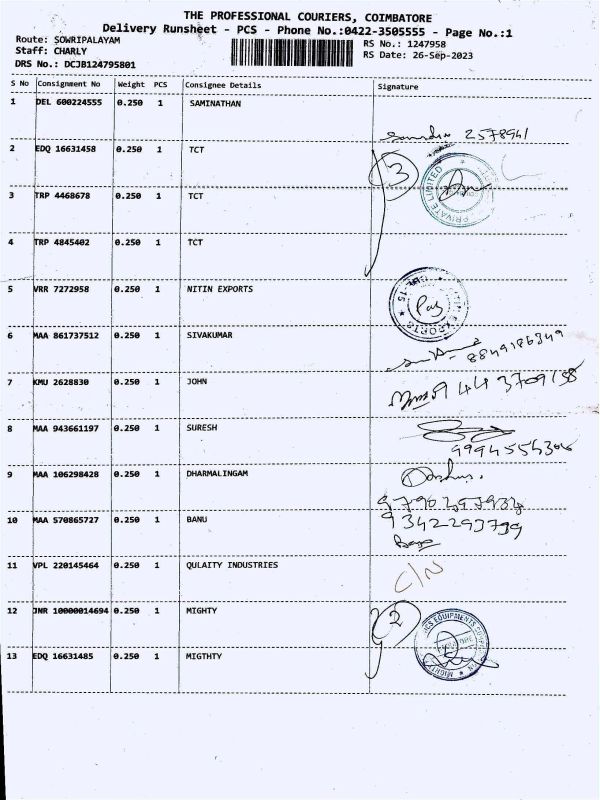 THE PROFESSIONAL COURIERS, COIMBATORE
Delivery Runsheet - PCS - Phone No.:0422-3505555 - Page No.:1
Route: SOWRIPALAYAM
Staff: CHARLY
DRS No.: DCJB124795801
RS No.: 1247958
RS Date: 26-Sep-2023
S No Consignment No Weight PCS Consignee Details Signature
1 DEL 600224555 0.250 1 SAMINATHAN
2578941
2 EDQ 16631458 0.250 1 TCT
3
PRIVATE LIMITED
3 TRP 4468678 0.250 1 TCT
4 TRP 4845402 0.250 1 TCT
5 VRR 7272958 0.250 1 NITIN EXPORTS
EXPORTS
6 MAA 861737512 0.250 1 SIVAKUMAR
8849186349
7 KMU 2628830 0.250 1 JOHN
8 MAA 943661197 0.250 1 SURESH
9 MAA 106298428 0.250 1 DHARMALINGAM
10 MAA 570865727 0.250 1 BANU
9342293799
11 VPL 220145464 0.250 1 QULAITY INDUSTRIES
C/N
12 JNR 10000014694 0.250 1 MIGHTY
2
EQUIPMENTS
13 EDQ 16631485 0.250 1 MIGTHTY